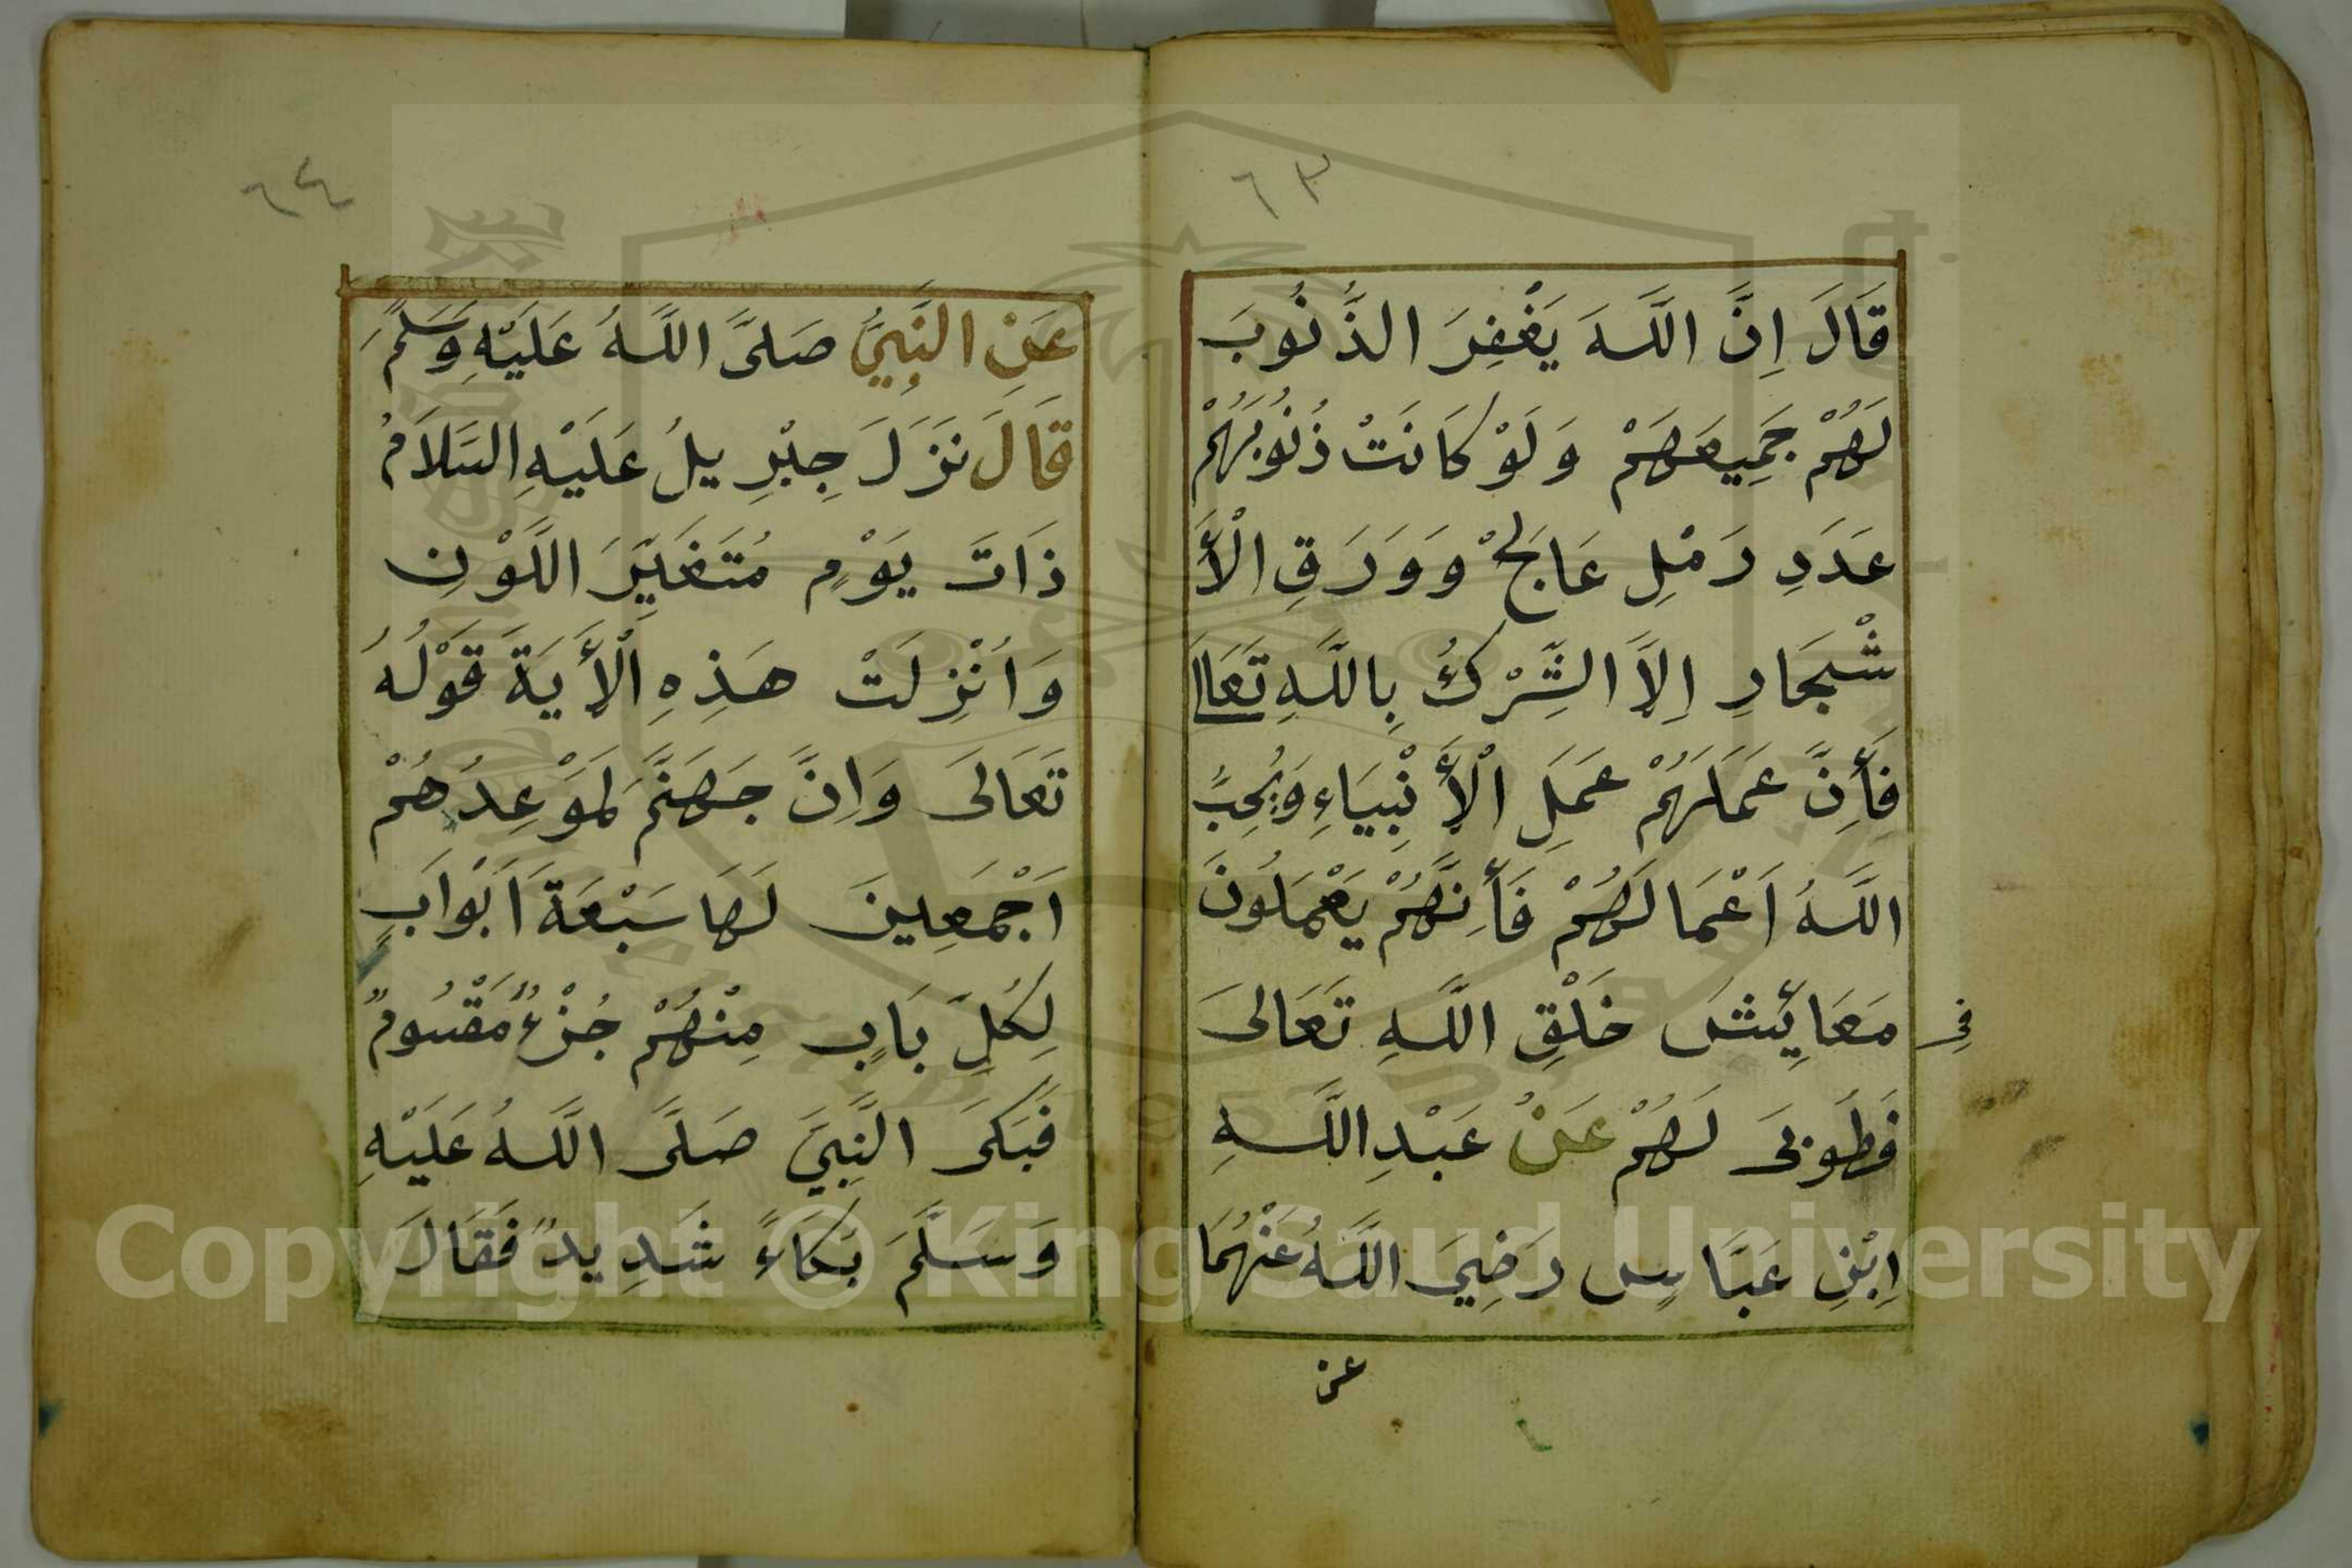 ٦٣
قَالَ اِنَّ اللَّهَ يَغْفِرَ الذُّنُوبَ
لَهُمْ جَمِيعَهَمْ وَلَوْ كَانَتْ ذُنُوبُهُمْ
عَدَدِ رَمْلِ عَالِجْ وَوَرَقِ الْأَ
شْجَارِ اِلاَّ الشِّرْكُ بِاللَّهِ تَعَالَى
فَأِنَّ عَمَلَهُمْ عَمَلِ الْأَنْبِيَاءِ وَيُحِبُّ
اللَّهُ اَعْمَالَهُمْ فَأِنَّهُمْ يَعْمَلُونَ
فِي مَعَائِشَ خَلْقِ اللَّهِ تَعَالَى
فَطُوبَى لَهُمْ عَنْ عَبْدِ اللَّهِ
اِبْنِ عَبَّاسٍ رَضِيَ اللَّهُ عَنْهُمَا
عن
٦٤
عَنِ النَّبِيِّ صَلَّى اللَّهُ عَلَيْهِ وَسَلَّمَ
قَالَ نَزَلَ جِبْرِيلُ عَلَيْهِ السَّلاَمُ
ذَاتَ يَوْمٍ مُتَغَيِّرَ اللَّوْنِ
وَاُنْزِلَتْ هَذِهِ الْأَيَةَ قَوْلُهُ
تَعَالَى وَاِنَّ جَهَنَّمَ لَمَوْعِدُهُمْ
اَجْمَعِينَ لَهَا سَبْعَةَ اَبْوَابٍ
لِكُلِّ بَابٍ مِنْهُمْ جُزْءٌ مَقْسُومٌ
فَبَكَى النَّبِيَّ صَلَّى اللَّهُ عَلَيْهِ
وَسَلَّمَ بَكَاءً شَدِيدً فَقَالَ
Copyright © King Saud University